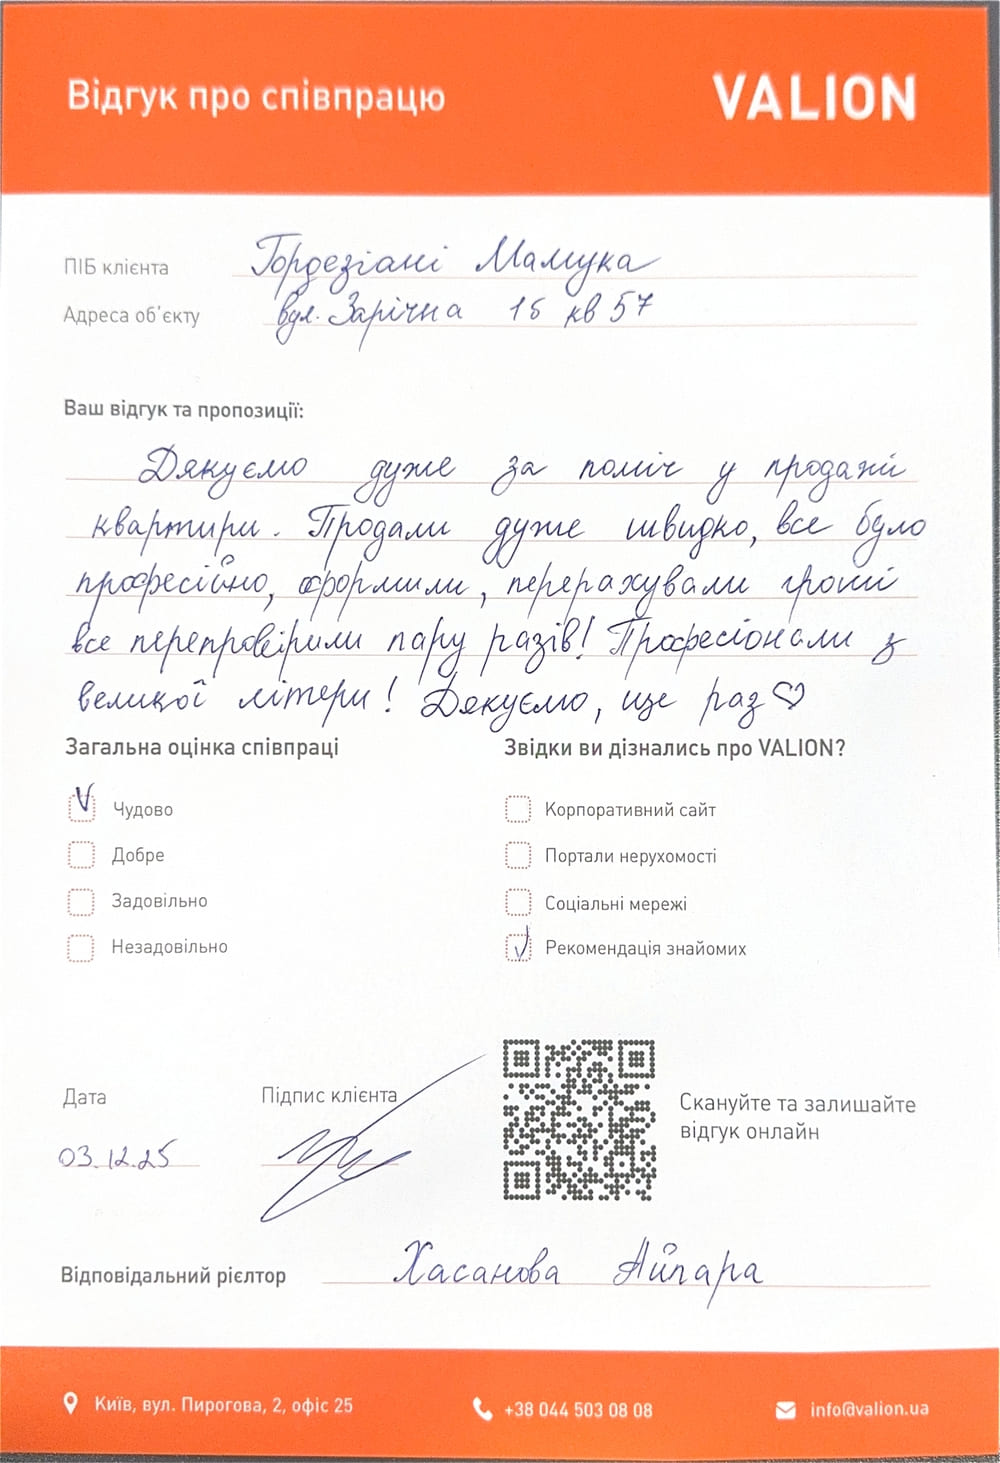 Відгук про співпрацю
VALION
ПІБ клієнта Гордезіані Мамука
Адреса об'єкту вул. Зарічна 1б кв 57
Ваш відгук та пропозиції:
Дякуємо дуже за поміч у продажі
квартири. Продали дуже швидко, все було
професійно, оформили, перерахували гроші
все перепровірили пару разів! Професіонали з
великої літери! Дякуємо, ще раз♡
Загальна оцінка співпраці
Чудово
Добре
Задовільно
Незадовільно
Звідки ви дізнались про VALION?
Корпоративний сайт
Портали нерухомості
Соціальні мережі
Рекомендація знайомих
Дата
03.12.25
Підпис клієнта
Скануйте та залишайте
відгук онлайн
Відповідальний рієлтор Хасанова Айпара
Київ, вул. Пирогова, 2, офіс 25
+38 044 503 08 08
info@valion.ua